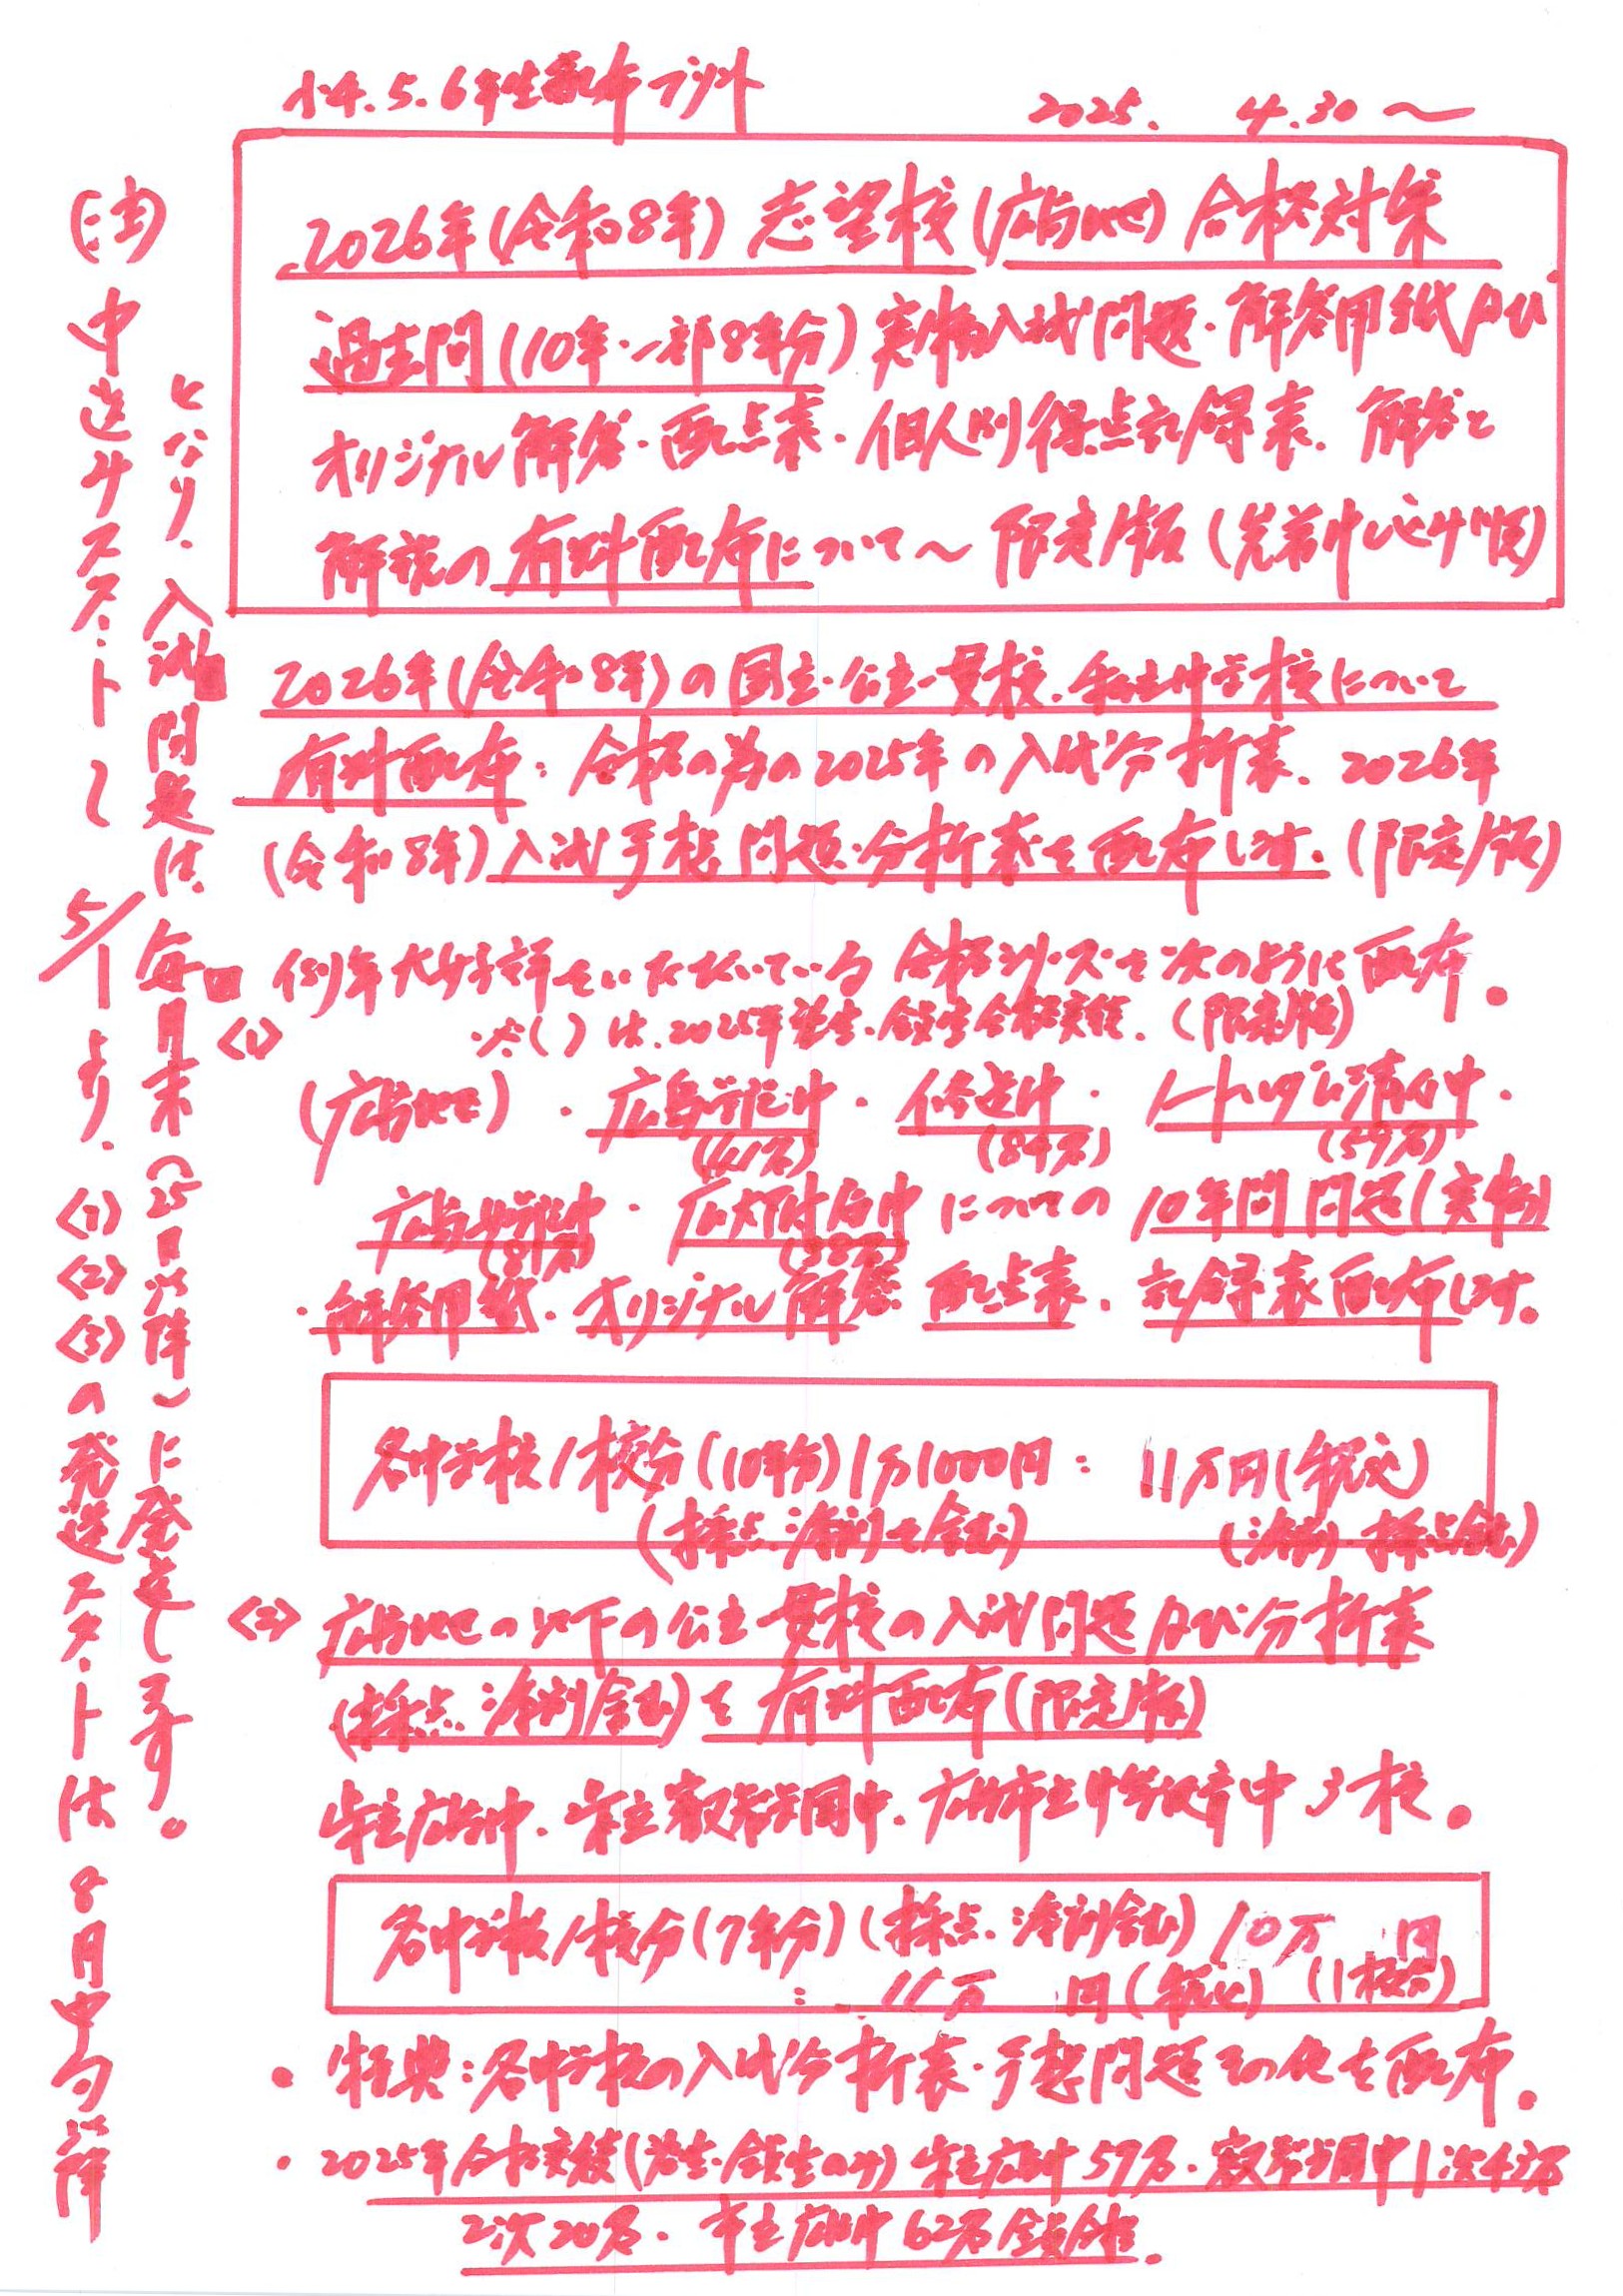 小4.5.6年生配布プリント
2025. 4.30〜
2026年(令和8年)志望校(広島地区)合格対策
過去問(10年・一部8年分)実物入試問題・解答用紙及び
オリジナル解答・配点表・個人別得点記録表、解答と
解説の有料配布について〜限定版(先着申し込み順)
2026年(令和8年)の国立・公立一貫校、私立中学校について
有料配布:合格の為の2025年の入試分析表、2026年
(令和8年)入試予想問題・分析表を配布します。(限定版)
例年大好評をいただいている合格シリーズを次のように配布。
<1>
※( )は、2025年塾生・会員生合格実績。(限定版)
(広島地区)・広島学院中・修道中・ノートルダム清心中・
(41名) (84名) (59名)
広島女学院中・広大附属中についての10年間問題(実物)
(81名) (38名)
・解答用紙・オリジナル解答、配点表、記録表配布します。
各中学校1校分(10年分)1万1000円: 11万円(税込)
(採点・添削を含む) (添削・採点含む)
<2> 広島地区の以下の公立一貫校の入試問題及び分析表
(採点・添削含む)を有料配布(限定版)
県立広島中、県立叡智学園中、広島市立中等教育中3校。
各中学校1校分(7年分)(採点・添削含む)10万 円
: 11万 円(税込)(1校分)
・特典:各中学校の入試分析表・予想問題その他を配布。
・2025年合格実績(塾生・会員生のみ)県立広島中57名・叡智学園中1次43名
2次20名・市立広島中62名全員合格.
(注)中途サスタートし 5/1より、<1><2><3>の発送スタートは8月中旬以降
となり、入試問題は、毎月末(25日以降)に発送します。